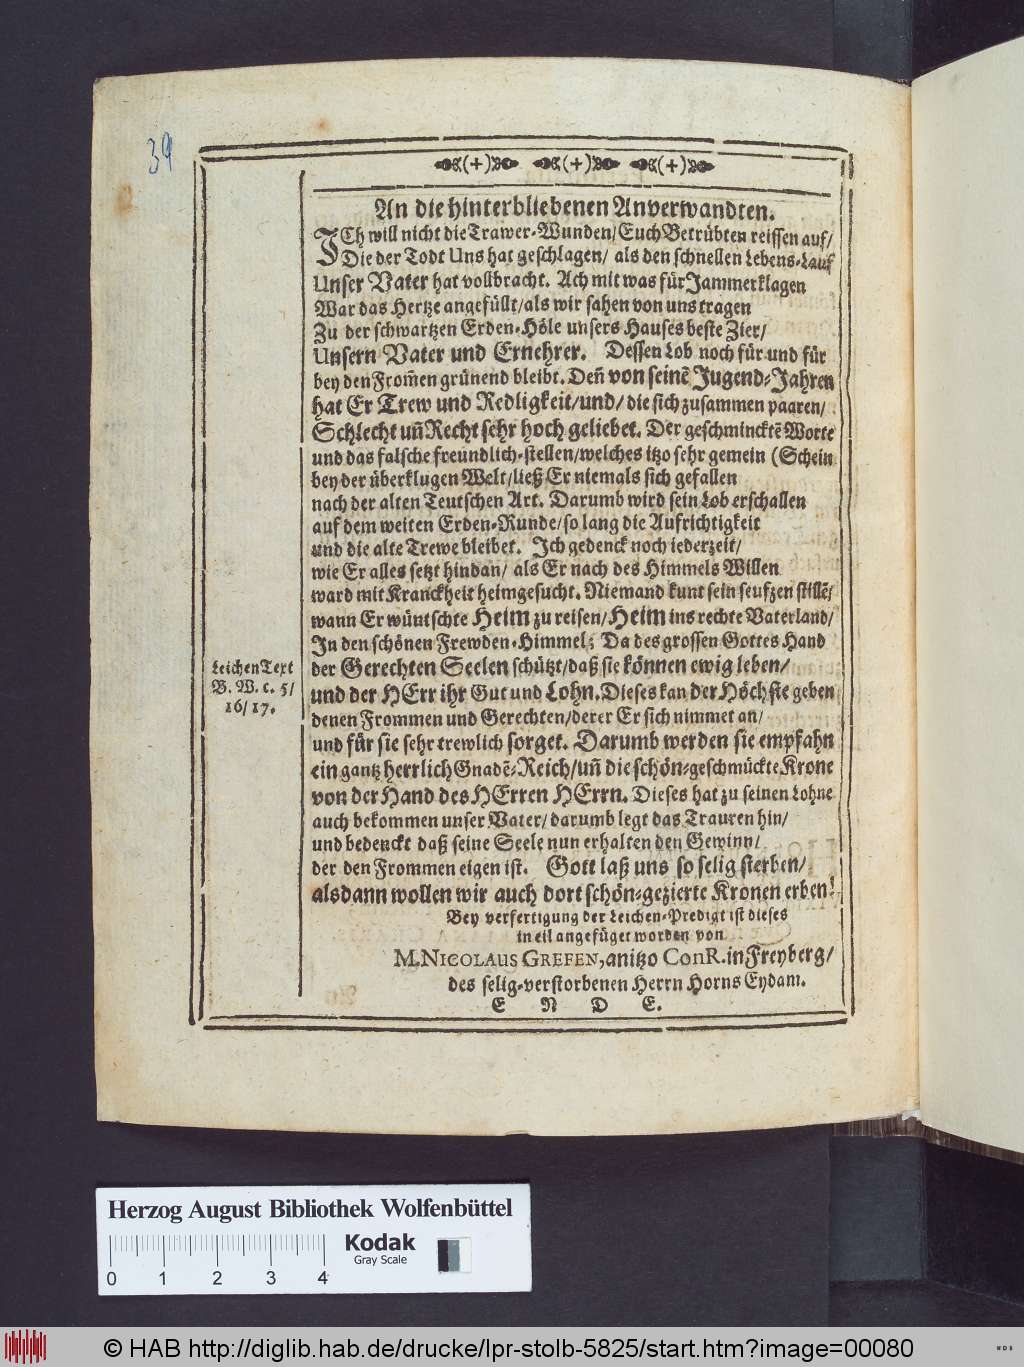 39
An die hinterbliebenen Anverwandten.
ICh will nicht die Trawer-Wunden/ Euch Betrübten reissen auf/
Die der Todt Uns hat geschlagen/ als den schnellen Lebens-Lauf
Unser Vater hat vollbracht. Ach mit was für Jammerklagen
War das Hertze angefüllt/ als wir sahen von uns tragen
Zu der schwartzen Erden-Höle unsers Hauses beste Zier/
Unsern Vater und Ernehrer. Dessen Lob noch für und für
bey den From̃en grünend bleibt. Deñ von seinẽ Jugend-Jahren
hat Er Trew und Redligkeit/ und/ die sich zusammen paaren/
Schlecht uñ Recht sehr hoch geliebet. Der geschmincktẽ Worte
und das falsche freundlich-stellen/ welches itzo sehr gemein (Schein
bey der überklugen Welt/ ließ Er niemals sich gefallen
nach der alten Teutschen Art. Darumb wird sein Lob erschallen
auf dem weiten Erden-Runde/ so lang die Aufrichtigkeit
und die alte Trewe bleibet. Ich gedenck noch iederzeit/
wie Er alles setzt hindan/ als Er nach des Himmels Willen
ward mit Kranckheit heimgesucht. Niemand kunt sein seufzen stillẽ/
wann Er wüntschte Heim zu reisen/ Heim ins rechte Vaterland/
In den schönen Frewden-Himmel; Da des grossen Gottes Hand
der Gerechten Seelen schützt/ daß sie können ewig leben/
Leichen Text
B. W. c. 5/
16/ 17.
und der HErr ihr Gut und Lohn. Dieses kan der Höchste geben
denen Frommen und Gerechten/ derer Er sich nimmet an/
und für sie sehr trewlich sorget. Darumb werden sie empfahn
ein gantz herrlich Gnadẽ-Reich/ uñ die schön-geschmückte Krone
von der Hand des HErren HErrn. Dieses hat zu seinen Lohne
auch bekommen unser Vater/ darumb legt das Trauren hin/
und bedenckt daß seine Seele nun erhalten den Gewinn/
der den Frommen eigen ist. Gott laß uns so selig sterben/
alsdann wollen wir auch dort schön-gezierte Kronen erben!
Bey verfertigung der Leichen-Predigt ist dieses
in eil angefüget worden von
M. NICOLAUS GREFEN, anitzo ConR. in Freyberg/
des selig-verstorbenen Herrn Horns Eydam.
E N D E.
Herzog August Bibliothek Wolfenbüttel
Kodak
Gray Scale
0 1 2 3 4
© HAB http://diglib.hab.de/drucke/lpr-stolb-5825/start.htm?image=00080